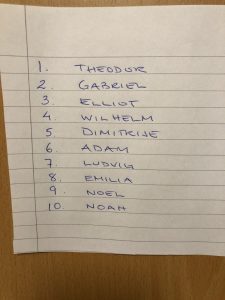 1. THEODOR
2. GABRIEL
3. ELLIOT
4. WILHELM
5. DIMITRIJE
6. ADAM
7. LUDVIG
8. EMILIA
9. NOEL
10. NOAH